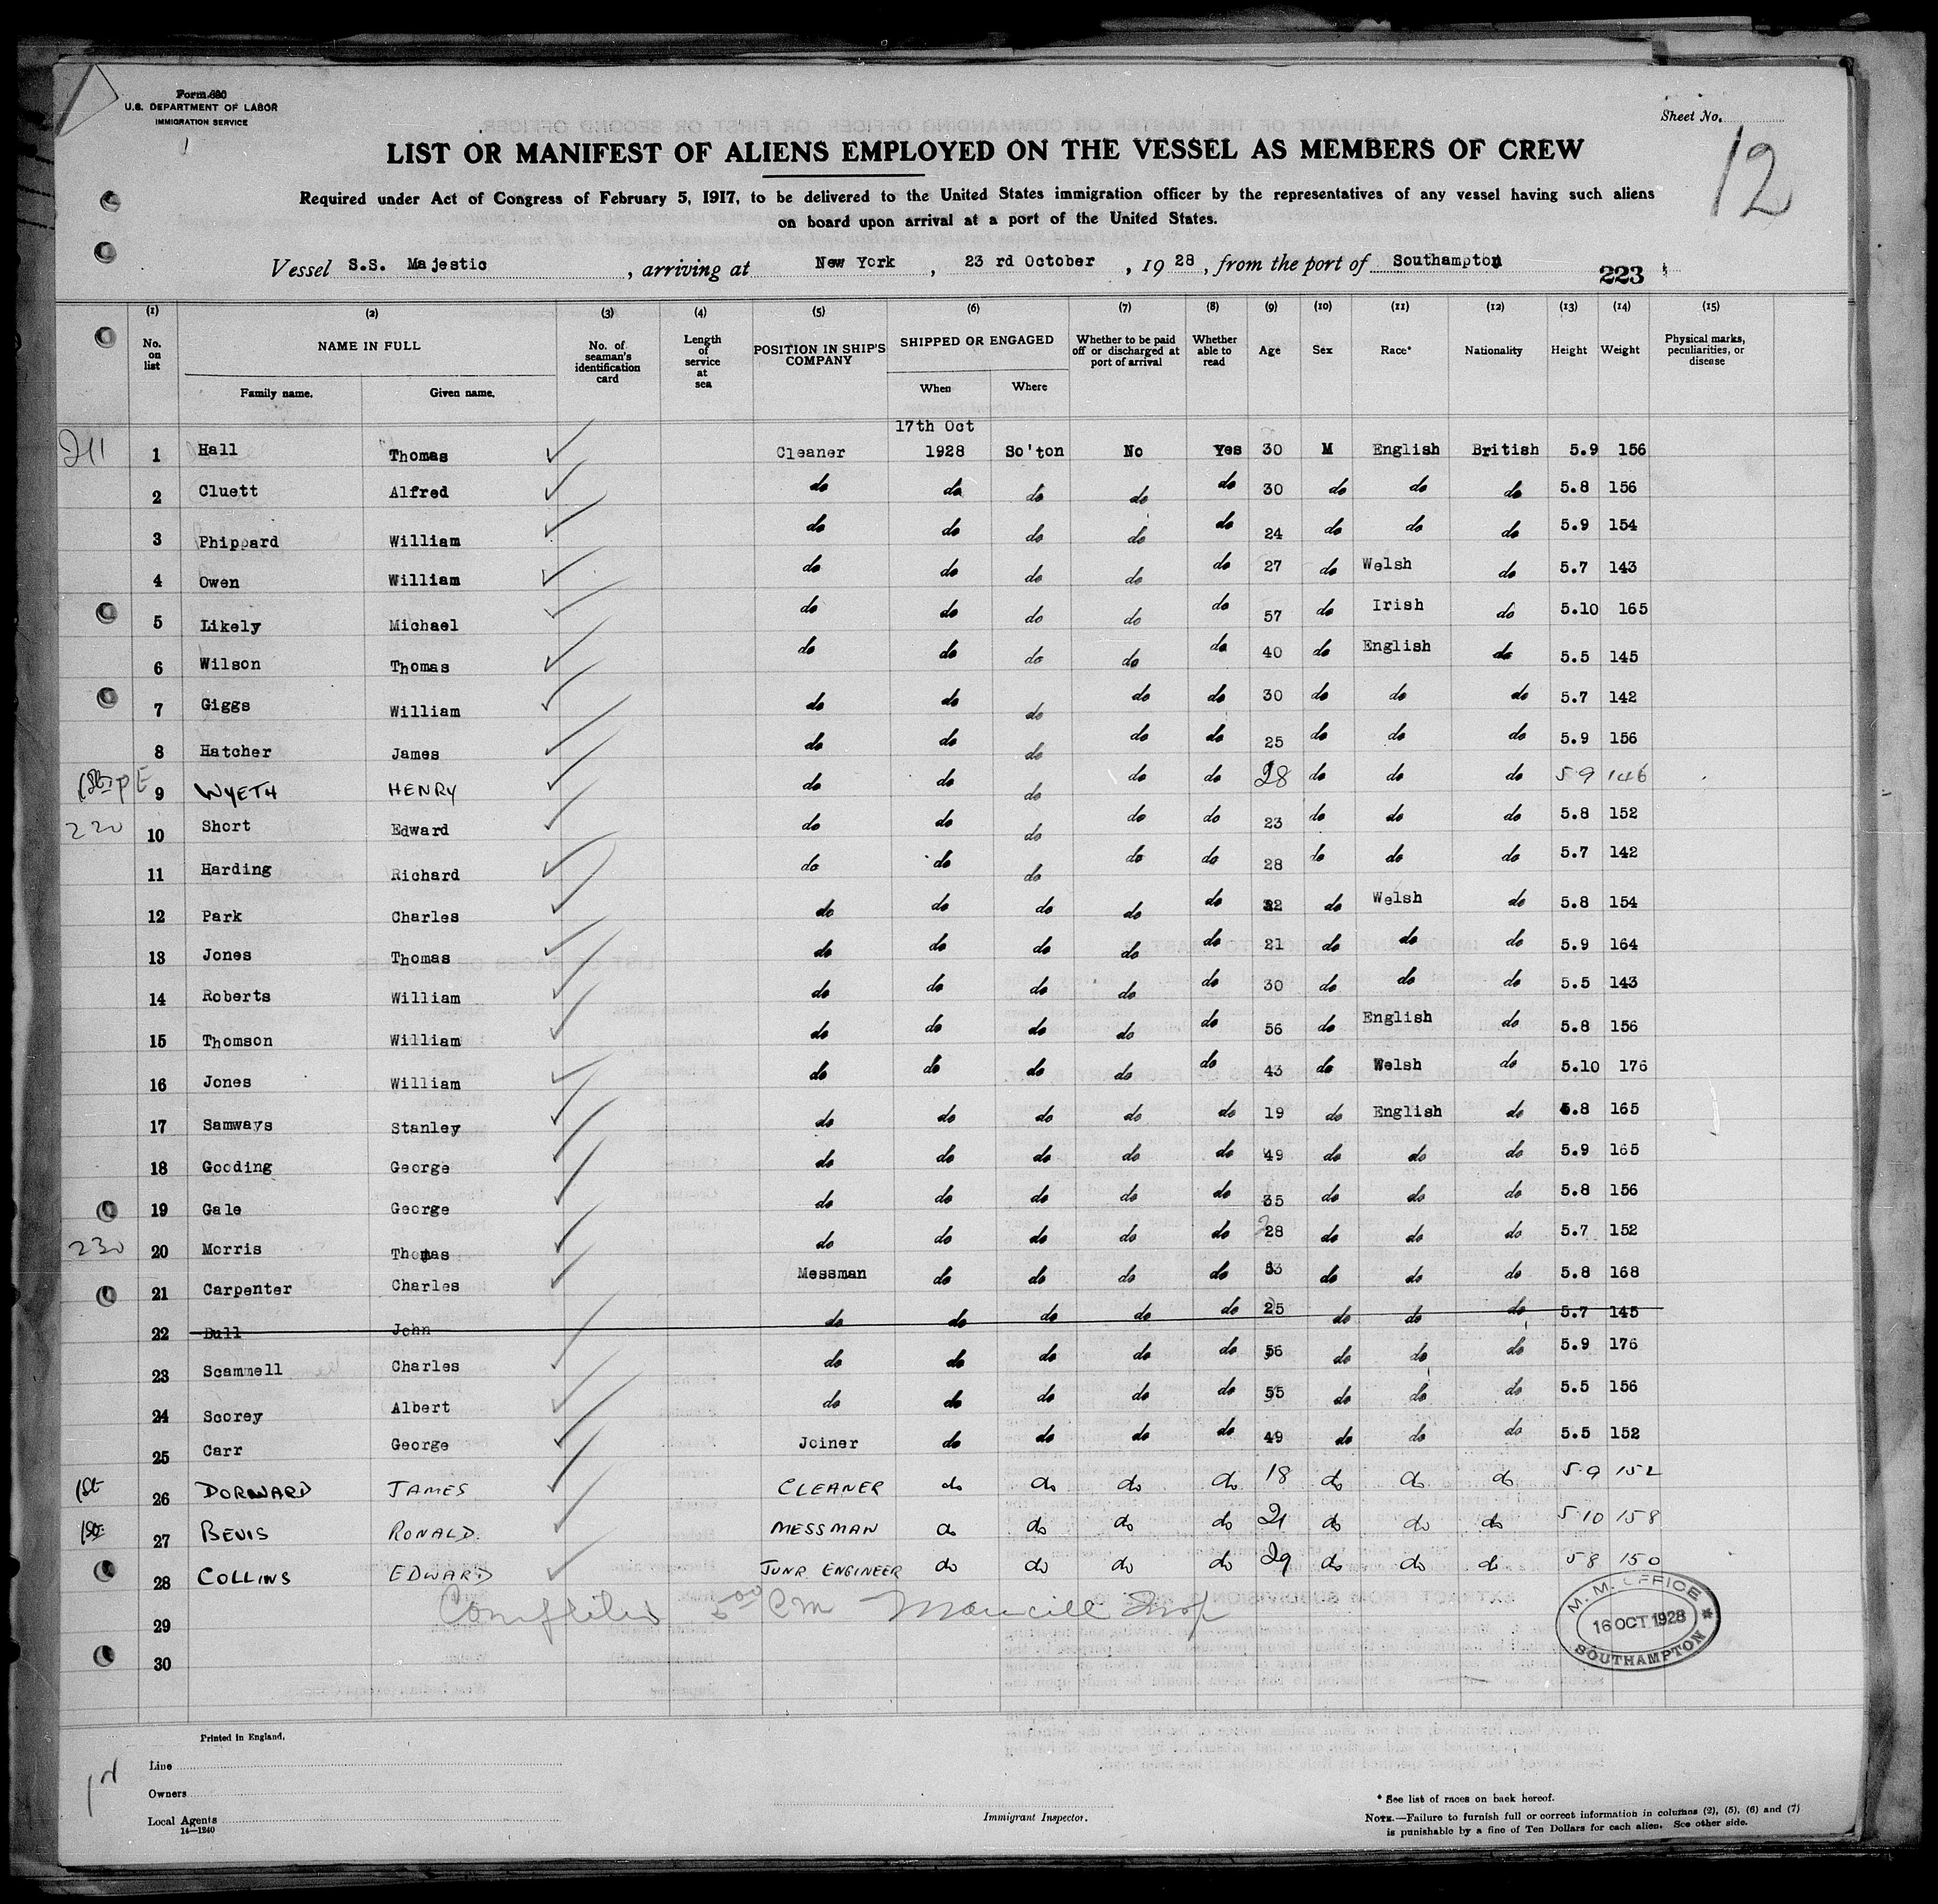 Form 680
U.S. DEPARTMENT OF LABOR
IMMIGRATION SERVICE
Sheet No.
12
LIST OR MANIFEST OF ALIENS EMPLOYED ON THE VESSEL AS MEMBERS OF CREW
Required under Act of Congress of February 5, 1917, to be delivered to the United States immigration officer by the representatives of any vessel having such aliens
on board upon arrival at a port of the United States.
Vessel S.S. Majestic, arriving at New York, 23 rd October, 19 28, from the port of Southampton 223
(1) (2) (3) (4) (5) (6) (7) (8) (9) (10) (11) (12) (13) (14) (15)
No. on list NAME IN FULL Family name. Given name. No. of seaman's identification card Length of service at sea POSITION IN SHIP'S COMPANY SHIPPED OR ENGAGED When Where Whether to be paid off or discharged at port of arrival Whether able to read Age Sex Race* Nationality Height Weight Physical marks, peculiarities, or disease
17th Oct
211 1 Hall Thomas Cleaner 1928 So'ton No Yes 30 M English British 5.9 156
2 Cluett Alfred do do do do do 30 do do do 5.8 156
3 Phippard William do do do do do 24 do do do 5.9 154
4 Owen William do do do do do 27 do Welsh do 5.7 143
5 Likely Michael do do do do do 57 do Irish do 5.10 165
6 Wilson Thomas do do do do do 40 do English do 5.5 145
7 Giggs William do do do do do 30 do do do 5.7 142
8 Hatcher James do do do do do 25 do do do 5.9 156
9 WYETH HENRY do do do do do 28 do do do 5 9 146
220 10 Short Edward do do do do do 23 do do do 5.8 152
11 Harding Richard do do do do do 28 do do do 5.7 142
12 Park Charles do do do do do do Welsh do 5.8 154
13 Jones Thomas do do do do do 21 do do do 5.9 164
14 Roberts William do do do do do 30 do do do 5.5 143
15 Thomson William do do do do do 56 do English do 5.8 156
16 Jones William do do do do do 43 do Welsh do 5.10 176
17 Samways Stanley do do do do do 19 do English do 5.8 165
18 Gooding George do do do do do 49 do do do 5.9 165
19 Gale George do do do do do 35 do do do 5.8 156
230 20 Morris Thomas do do do do do 28 do do do 5.7 152
21 Carpenter Charles Messman do do do do do do do 5.8 168
22 Bull John do do do do do 25 do do do 5.7 145
23 Scammell Charles do do do do do 56 do do do 5.9 176
24 Scorey Albert do do do do do 55 do do do 5.5 156
25 Carr George Joiner do do do do 49 do do do 5.5 152
1St 26 DORWARD JAMES CLEANER do do do do 18 do do do 5.9 152
1St 27 BEVIS RONALD. MESSMAN do do do do 21 do do do 5 10 158
28 COLLINS EDWARD JUNR ENGINEER do do do do 29 do do do 5 8 150
29
30
M. M. OFFICE
16 OCT 1928
SOUTHAMPTON
Printed in England.
Line
Owners
Local Agents
14—1240
Immigrant Inspector.
* See list of races on back hereof.
NOTE.—Failure to furnish full or correct information in columns (2), (5), (6) and (7)
is punishable by a fine of Ten Dollars for each alien. See other side.